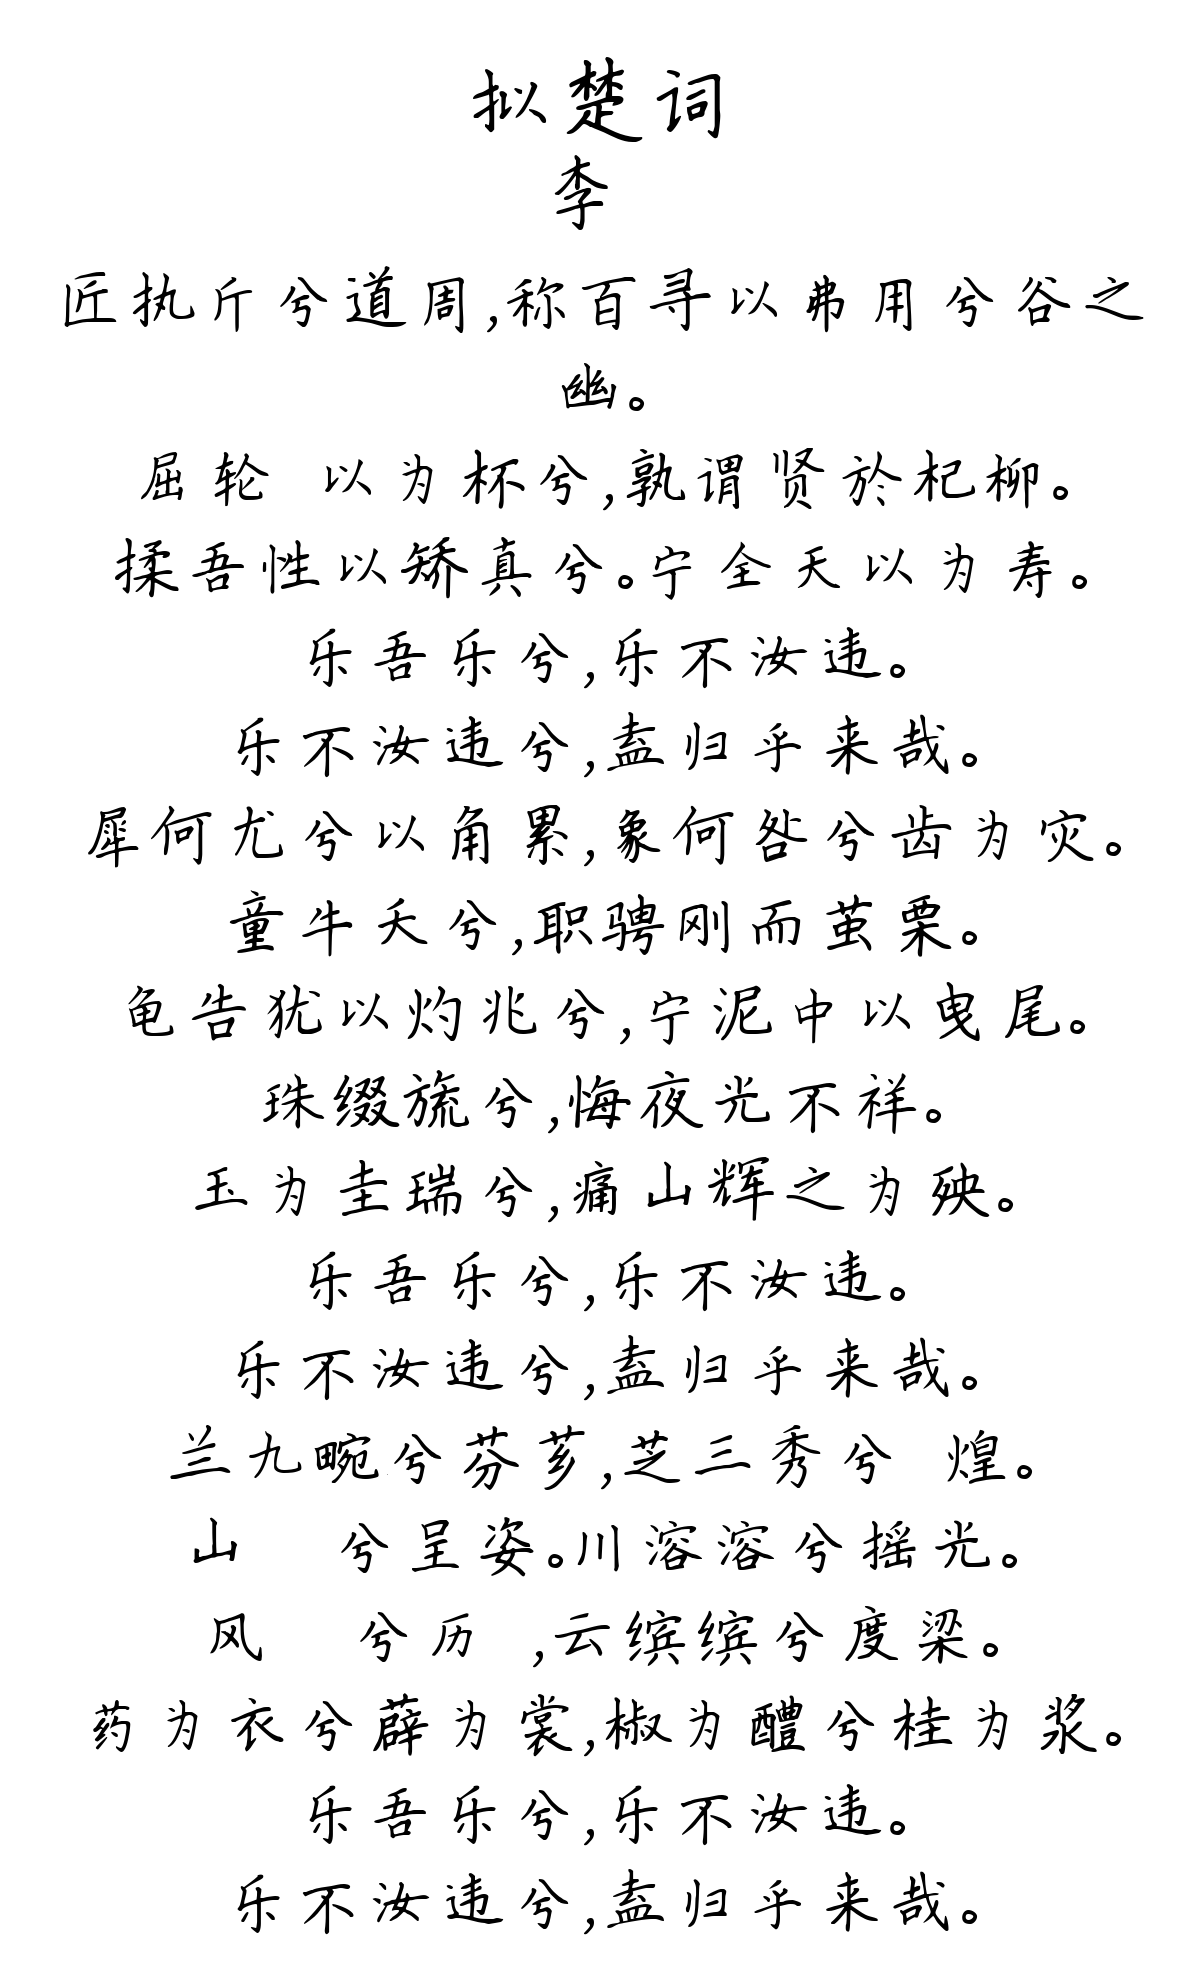 拟楚词
李
匠执斤兮道周,称百寻以弗用兮谷之
幽。
屈轮 以为杯兮,孰谓贤於杞柳。
揉吾性以矫真兮。宁全天以为寿。
乐吾乐兮,乐不汝违。
乐不汝违兮,盍归乎来哉。
犀何尤兮以角累,象何咎兮齿为灾。
童牛夭兮,职骋刚而茧栗。
龟告犹以灼兆兮,宁泥中以曳尾。
珠缀旒兮,悔夜光不祥。
玉为圭瑞兮,痛山辉之为殃。
乐吾乐兮,乐不汝违。
乐不汝违兮,盍归乎来哉。
兰九畹兮芬芗,芝三秀兮 煌。
山 兮呈姿。川溶溶兮摇光。
风 兮历 ,云缤缤兮度梁。
药为衣兮薜为裳,椒为醴兮桂为浆。
乐吾乐兮,乐不汝违。
乐不汝违兮,盍归乎来哉。